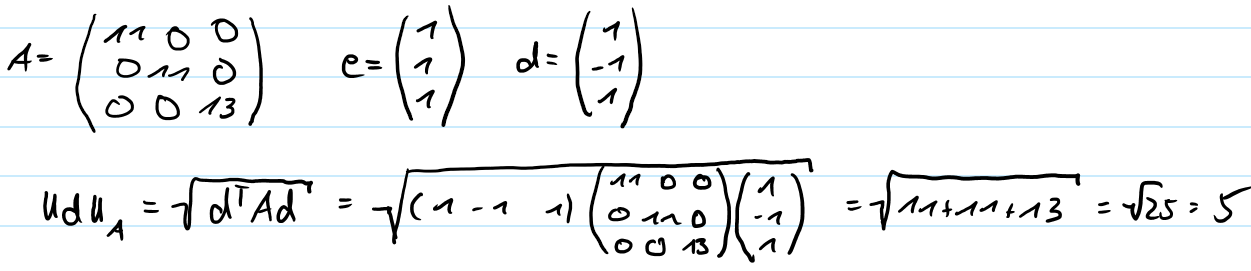 A = (11 0 0; 0 11 0; 0 0 13) e = (1; 1; 1) d = (1; -1; 1)
‖d‖_A = √(dᵀAd) = √((1 -1 1) (11 0 0; 0 11 0; 0 0 13) (1; -1; 1)) = √(11+11+13) = √25 = 5